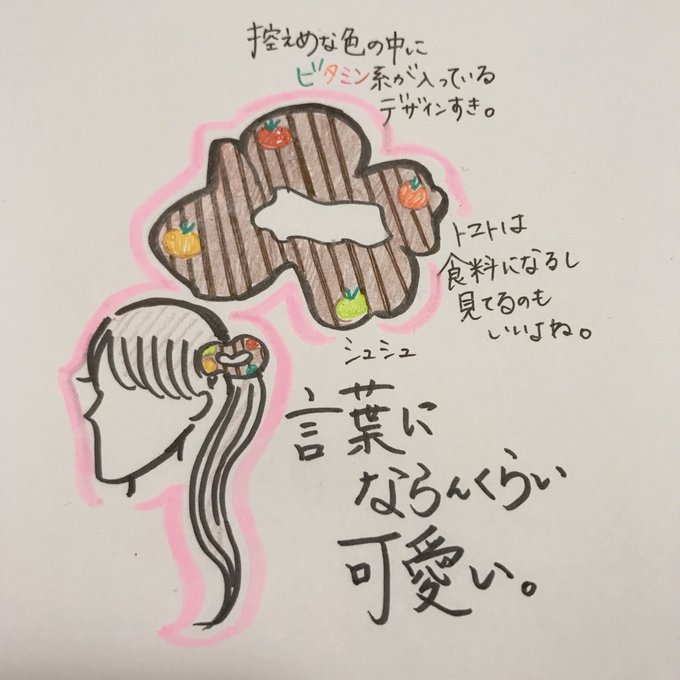 控えめな色の中に
ビタミン系が入っている
デザインすき。
トマトは
食料になるし
見てるのも
いいよね。
シュシュ
言葉に
ならんくらい
可愛い。